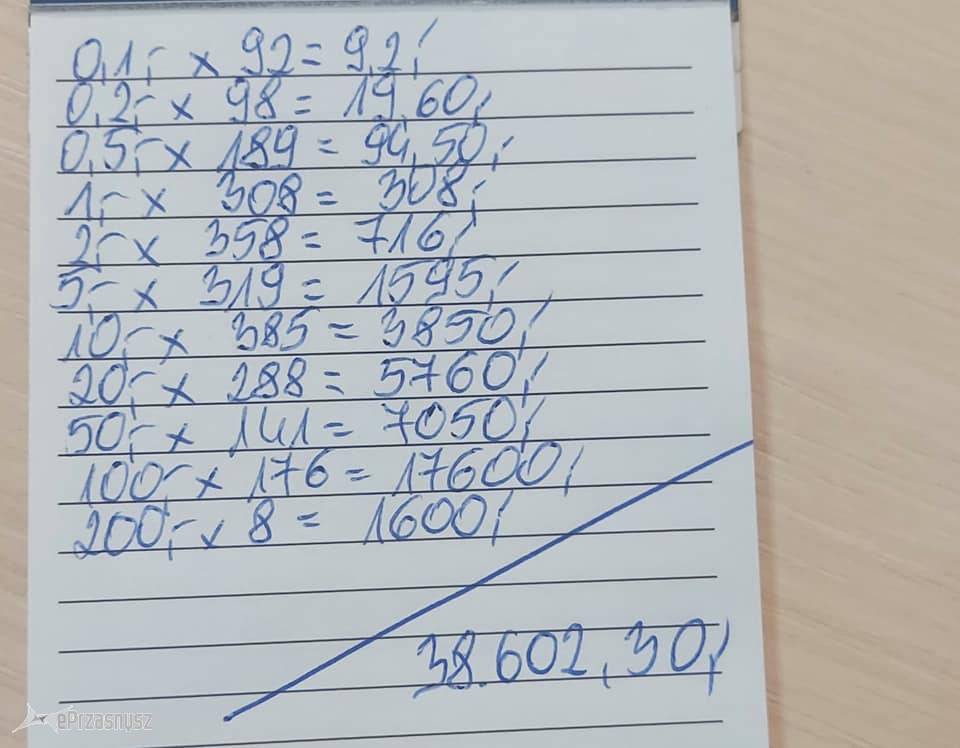 0,1,- x 92 = 9,2,-
0,2,- x 98 = 19,60,-
0,5,- x 189 = 94,50,-
1,- x 308 = 308,-
2,- x 358 = 716,-
5,- x 319 = 1595,-
10,- x 385 = 3850,-
20,- x 288 = 5760,-
50,- x 141 = 7050,-
100,- x 176 = 17600,-
200,- x 8 = 1600,-
38.602,30,-
ePrzasnysz